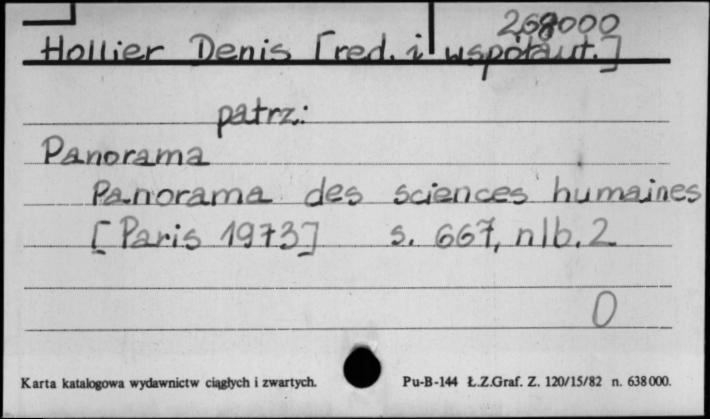 268000
Hollier Denis [red. i współaut.]
patrz:
Panorama
Panorama des sciences humaines
[Paris 1973] s. 667, nlb. 2
0
Karta katalogowa wydawnictw ciągłych i zwartych. Pu-B-144 Ł.Z.Graf. Z. 120/15/82 n. 638000.